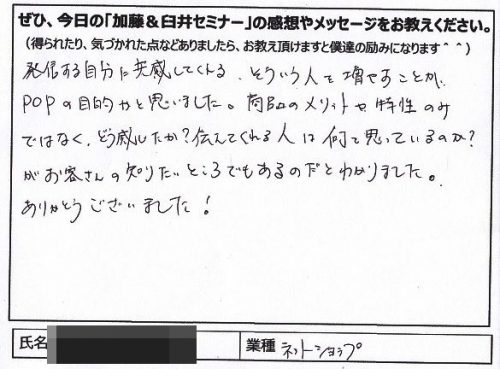 ぜひ、今日の「加藤＆臼井セミナー」の感想やメッセージをお教えください。
(得られたり、気づかれた点などありましたら、お教え頂けますと僕達の励みになります＾＾)
発信する自分に共感してくれる、そういう人を増やすことが、
POPの目的かと思いました。商品のメリットや特性のみ
ではなく、どう感じたか?伝えてくれる人は何て思っているのか?
がお客さんの知りたいところでもあるのだとわかりました。
ありがとうございました!
氏名
業種 ネットショップ